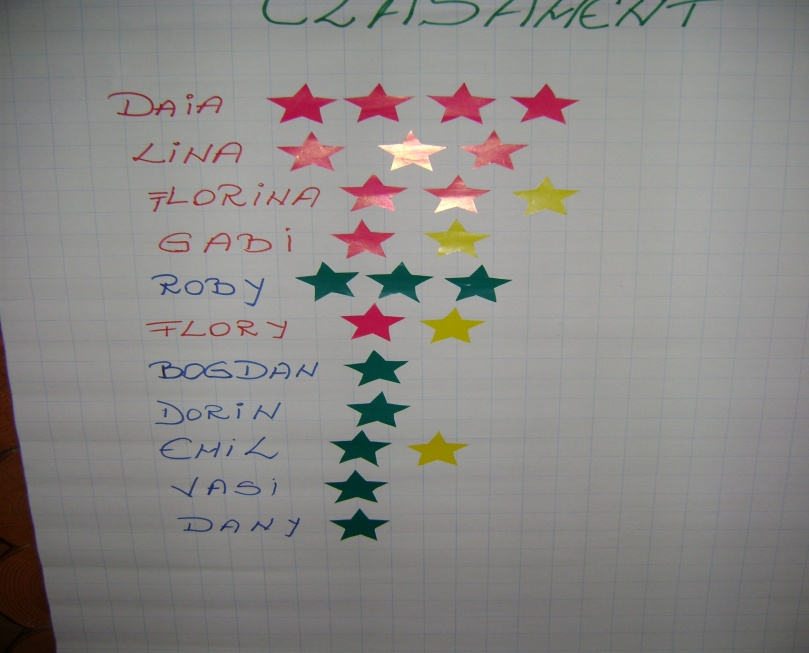 CLASAMENT
DAiA
LiNA
FLORiNA
GABi
ROBY
FLORY
BOGDAN
DORiN
EMiL
VASi
DANY